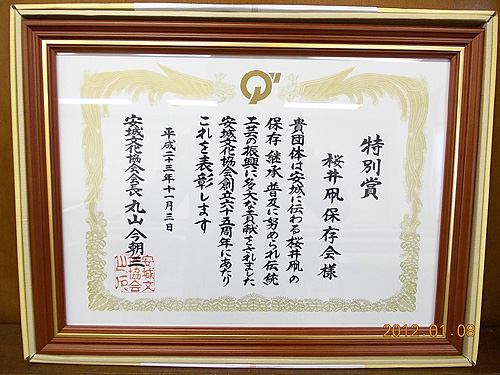 特別賞
桜井凧保存会様
貴団体は安城に伝わる桜井凧の
保存 継承 普及に努められ伝統
工芸の振興に多大な貢献をされました
安城文化協会創立六十五周年にあたり
これを表彰します
平成二十三年十一月三日
安城文化協会会長 丸山今朝三
安城文
化協会
2012.01.08